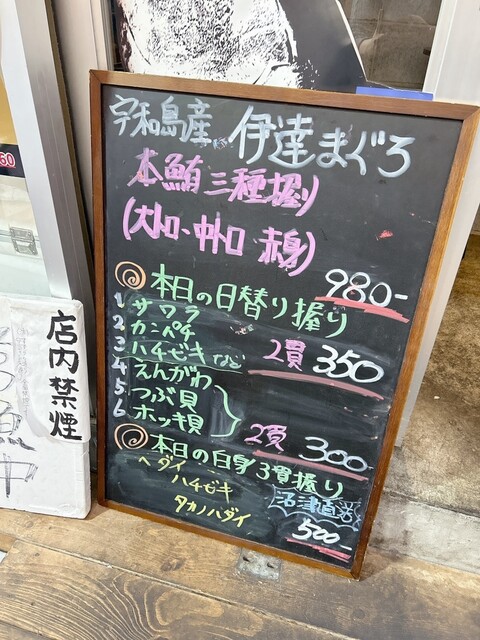 宇和島産 伊達まぐろ
本鮪三種握り
(大トロ・中トロ 赤身)
980-
本日の日替り握り
1 サワラ
2 カンパチ
3 ハチビキ など
2貫 350
4 えんがわ
5 つぶ貝
6 ホッキ貝
2貫 300
本日の白身3貫握り
ヘダイ
ハチビキ
タカノハダイ
沼津直送
500-
店内禁煙
60